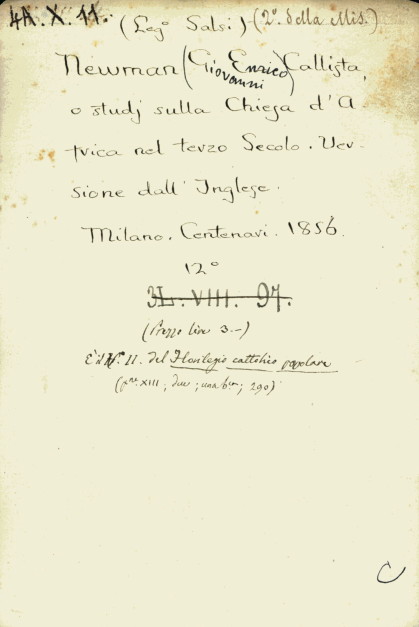 4A. X. 11. (Leg.º Salsi) - (2.º della Mis.)
Newman (Giovanni Enrico) Callista,
o studj sulla Chiesa d'A-
frica nel terzo Secolo. Ver-
sione dall'Inglese.
Milano. Centenari. 1856.
12º
3L. VIII. 97.
(Prezzo lire 3.–)
È il Nº. II. del Florilegio cattolico popolare
(pne XIII; due; una bca; 290)
C